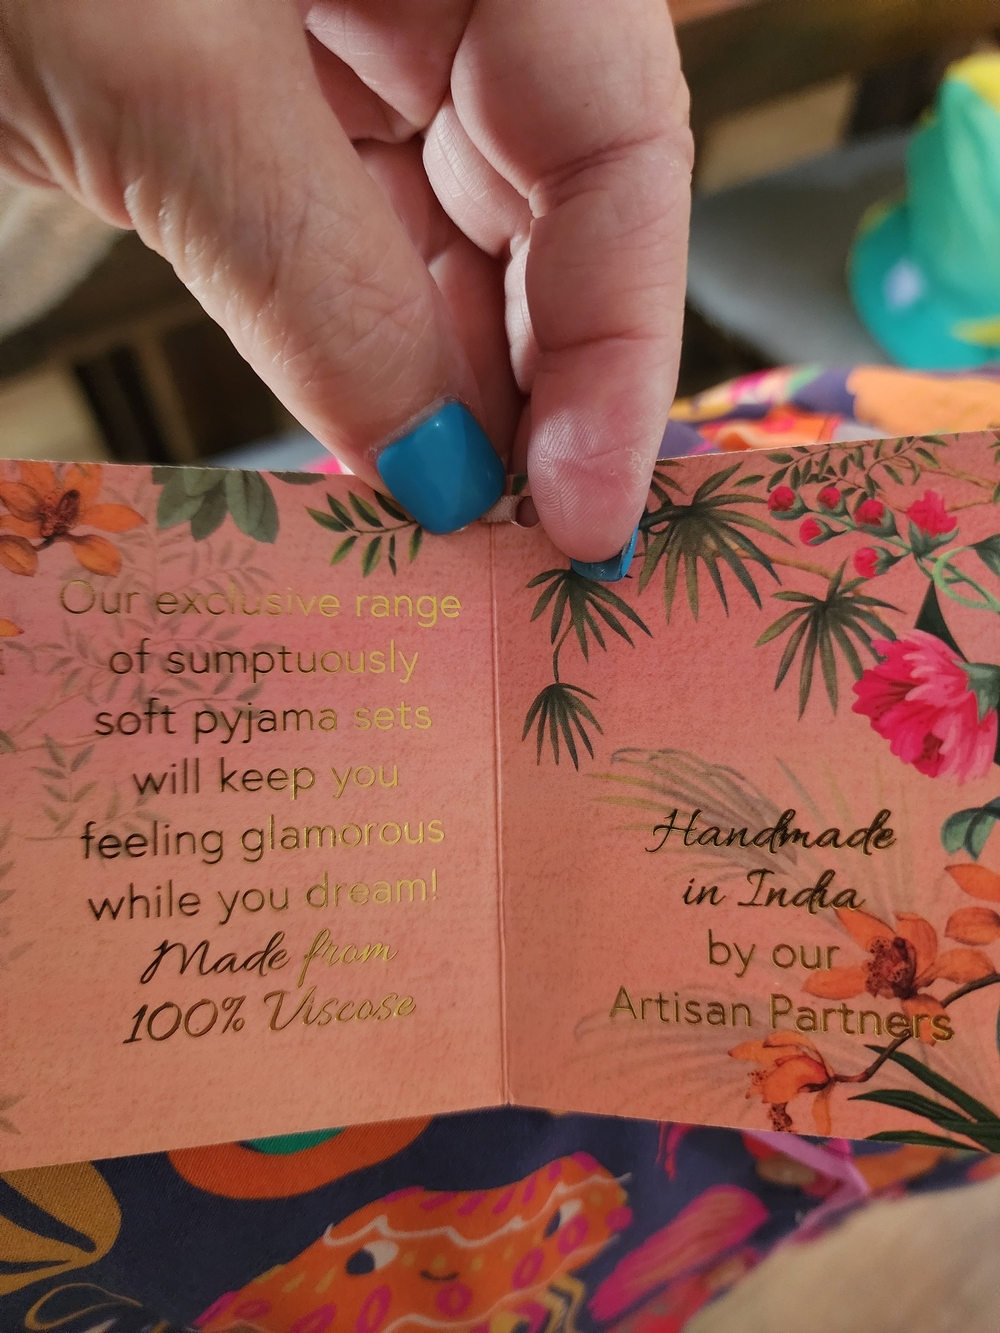 Our exclusive range
of sumptuously
soft pyjama sets
will keep you
feeling glamorous
while you dream!
Made from
100% Viscose
Handmade
in India
by our
Artisan Partners